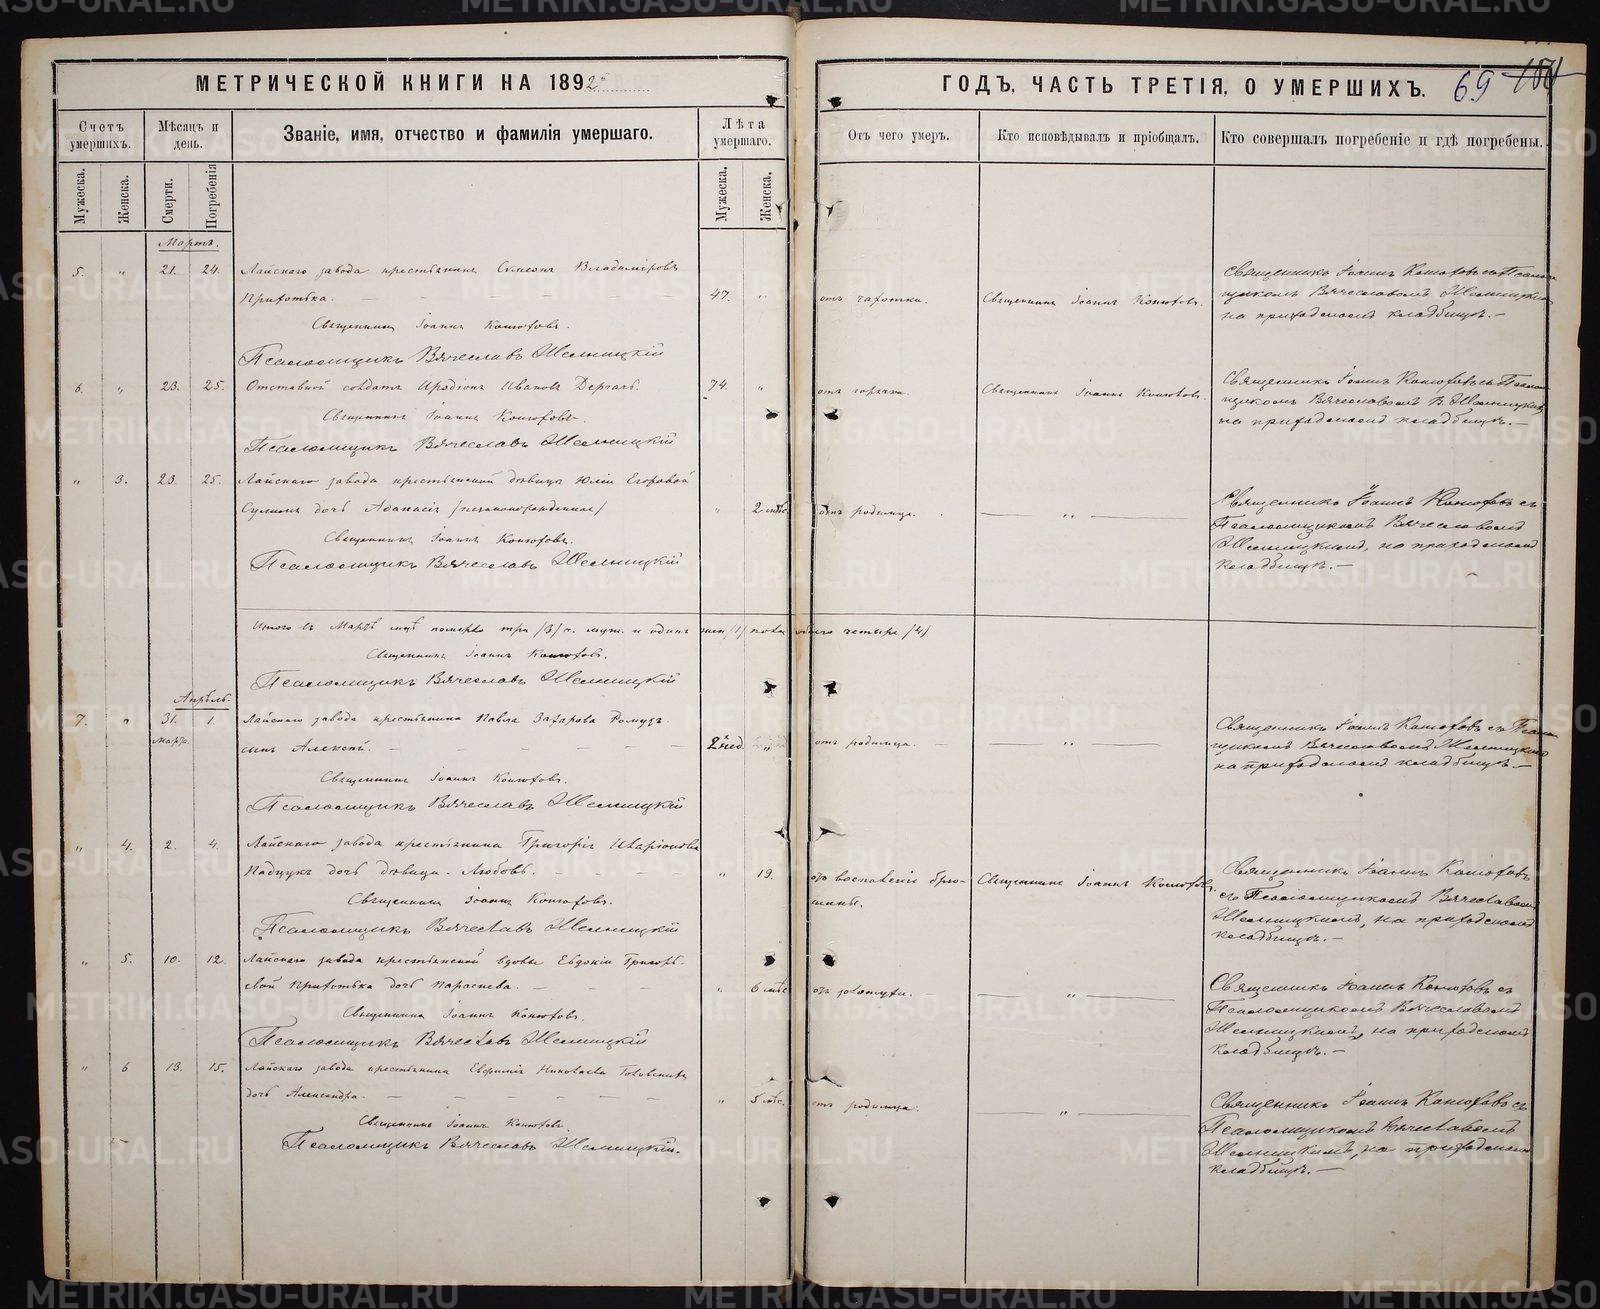 МЕТРИЧЕСКОЙ КНИГИ НА 1892
ГОДЪ, ЧАСТЬ ТРЕТІЯ, О УМЕРШИХЪ.
69
Счетъ умершихъ.
Мѣсяцъ и день.
Званіе, имя, отчество и фамилія умершаго.
Лѣта умершаго.
Отъ чего умеръ.
Кто исповѣдывалъ и пріобщалъ.
Кто совершалъ погребеніе и гдѣ погребены.
Мужеска.
Женска.
Смерти.
Погребенія
Мужеска.
Женска.
Мартъ.
5. " 21. 24. Лайскаго завода крестьянинъ Симеонъ Владиміровъ
Прихотька. 47. " отъ чахотки. Священникъ Іоаннъ Конюховъ.
Священникъ Іоаннъ Конюховъ съ Псалом-
щикомъ Вячеславомъ
на приходскомъ кладбищѣ.
Священникъ Іоаннъ Конюховъ.
Псаломщикъ Вячеславъ
6. " 23. 25. Отставной солдатъ Иродіонъ Ивановъ Дергачъ. 74. " отъ горячки. Священникъ Іоаннъ Конюховъ.
Священникъ Іоаннъ Конюховъ съ Псалом-
щикомъ Вячеславомъ В.
на приходскомъ кладбищѣ.
Священникъ Іоаннъ Конюховъ.
Псаломщикъ Вячеславъ
" 3. 23. 25. Лайскаго завода крестьянской дѣвицы Юліи Егоровой
дочь /незаконорожденная/ " 2 мѣс. отъ родимца. "
Священникъ Іоаннъ Конюховъ съ
Псаломщикомъ Вячеславомъ
на приходскомъ
кладбищѣ.
Священникъ Іоаннъ Конюховъ.
Псаломщикъ Вячеславъ
Итого въ Мартѣ мцѣ померло три /3/ ч. муж. и одинъ жен. /1/ пола всего четыре /4/
Священникъ Іоаннъ Конюховъ.
Псаломщикъ Вячеславъ
Апрѣль.
7. " 31. 1. Лайскаго завода крестьянина Павла Захарова
Марта. сынъ Алексѣй. 2 нед. " отъ родимца. "
Священникъ Іоаннъ Конюховъ съ Псалом-
щикомъ Вячеславомъ
на приходскомъ кладбищѣ.
Священникъ Іоаннъ Конюховъ.
Псаломщикъ Вячеславъ
" 4. 2. 4. Лайскаго завода крестьянина Григорія Иларіонова
дочь дѣвица Любовь. " 19. отъ воспаленія брю-
шины.
Священникъ Іоаннъ Конюховъ.
Священникъ Іоаннъ Конюховъ
съ Псаломщикомъ Вячеславомъ
на приходскомъ
кладбищѣ.
Священникъ Іоаннъ Конюховъ.
Псаломщикъ Вячеславъ
" 5. 10. 12. Лайскаго завода крестьянской вдовы Евдокіи Григорь-
евой Прихотька дочь " 6 мѣс. "
Священникъ Іоаннъ Конюховъ съ
Псаломщикомъ Вячеславомъ
на приходскомъ
кладбищѣ.
Священникъ Іоаннъ Конюховъ.
Псаломщикъ Вячеславъ
" 6 13. 15. Лайскаго завода крестьянина
дочь Александра. " 5 мѣс. отъ родимца. "
Священникъ Іоаннъ Конюховъ съ
Псаломщикомъ Вячеславомъ
на приходскомъ
кладбищѣ.
Священникъ Іоаннъ Конюховъ.
Псаломщикъ Вячеславъ
METRIKI.GASO-URAL.RU